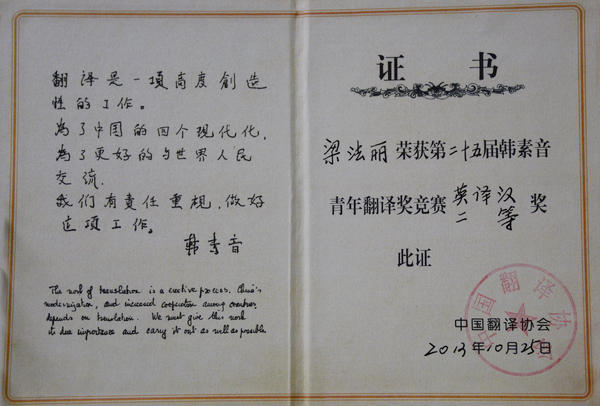 翻译是一項高度創造
性的工作。
為了中国的四个现代化,
為了更好的与世界人民
交流,
我们有责任重視,做好
这項工作。
韩素音
The work of translation is a creative process. China's
modernization, and increased cooperation among countries,
depends on translation. We must give this work
its due importance and carry it out as well as possible
证书
梁法丽荣获第二十五届韩素音
青年翻译奖竞赛英译汉
二等奖
此证
中国翻译协会
中国翻译协会
2013年10月25日